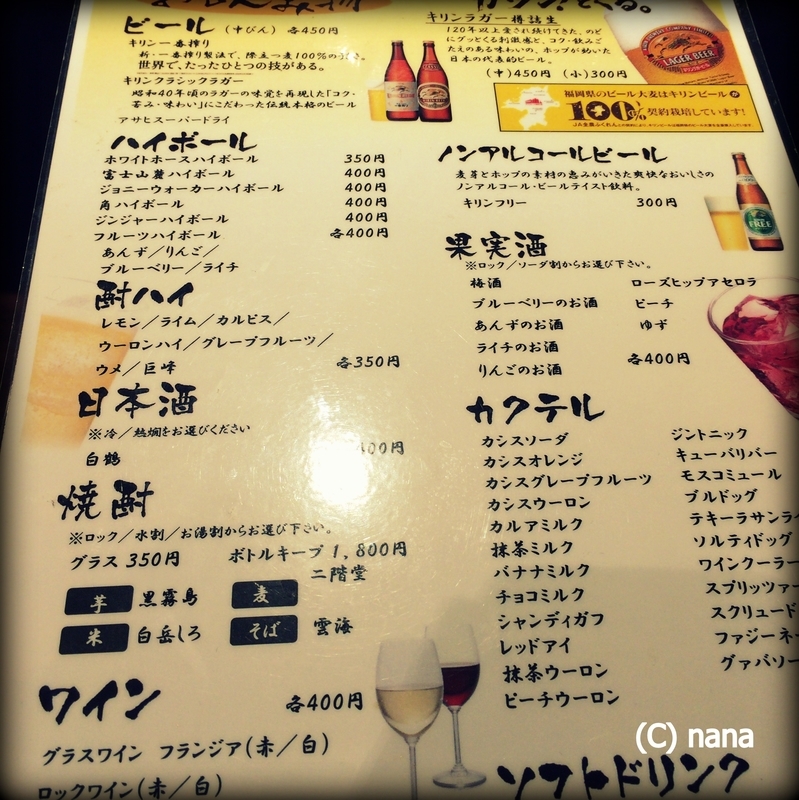 ビール (中びん) 各450円
キリン一番搾り
新・一番搾り製法で、際立つ麦100%の
世界で、たったひとつの技がある。
キリンクラシックラガー
昭和40年頃のラガーの味覚を再現した「コク・
苦み・味わい」にこだわった伝統本格のビール
アサヒスーパードライ
ハイボール
ホワイトホースハイボール 350円
富士山麓ハイボール 400円
ジョニーウォーカーハイボール 400円
角ハイボール 400円
ジンジャーハイボール 400円
フルーツハイボール 各400円
あんず/りんご/
ブルーベリー/ライチ
酎ハイ
レモン/ライム/カルピス/
ウーロンハイ/グレープフルーツ/
ウメ/巨峰 各350円
日本酒
※冷/熱燗をお選びください
白鶴 400円
焼酎
※ロック/水割/お湯割からお選び下さい。
グラス 350円 ボトルキープ 1,800円
芋 黒霧島 麦 二階堂
米 白岳しろ そば 雲海
ワイン 各400円
グラスワイン フランジア(赤/白)
ロックワイン(赤/白)
キリンラガー樽詰生
120年以上愛され続けてきた、のど
にグッとくる刺激感と、コク・飲みご
たえのある味わいの、ホップが効いた
日本の代表的ビール。
(中)450円 (小)300円
LAGER BEER
福岡県のビール大麦はキリンビールが
100%契約栽培しています!
ノンアルコールビール
麦芽とホップの素材の恵みがいきた爽快なおいしさの
ノンアルコール・ビールテイスト飲料。
キリンフリー 300円
FREE
果実酒
※ロック/ソーダ割からお選び下さい。
梅酒 ローズヒップアセロラ
ブルーベリーのお酒 ピーチ
あんずのお酒 ゆず
ライチのお酒
りんごのお酒 各400円
カクテル
カシスソーダ ジントニック
カシスオレンジ キューバリバー
カシスグレープフルーツ モスコミュール
カシスウーロン ブルドッグ
カルアミルク テキーラサンライ
抹茶ミルク ソルティドッグ
バナナミルク ワインクーラー
チョコミルク スプリッツァー
シャンディガフ スクリュード
レッドアイ ファジーネー
抹茶ウーロン グァバソー
ピーチウーロン
ソフトドリンク
(C) nana